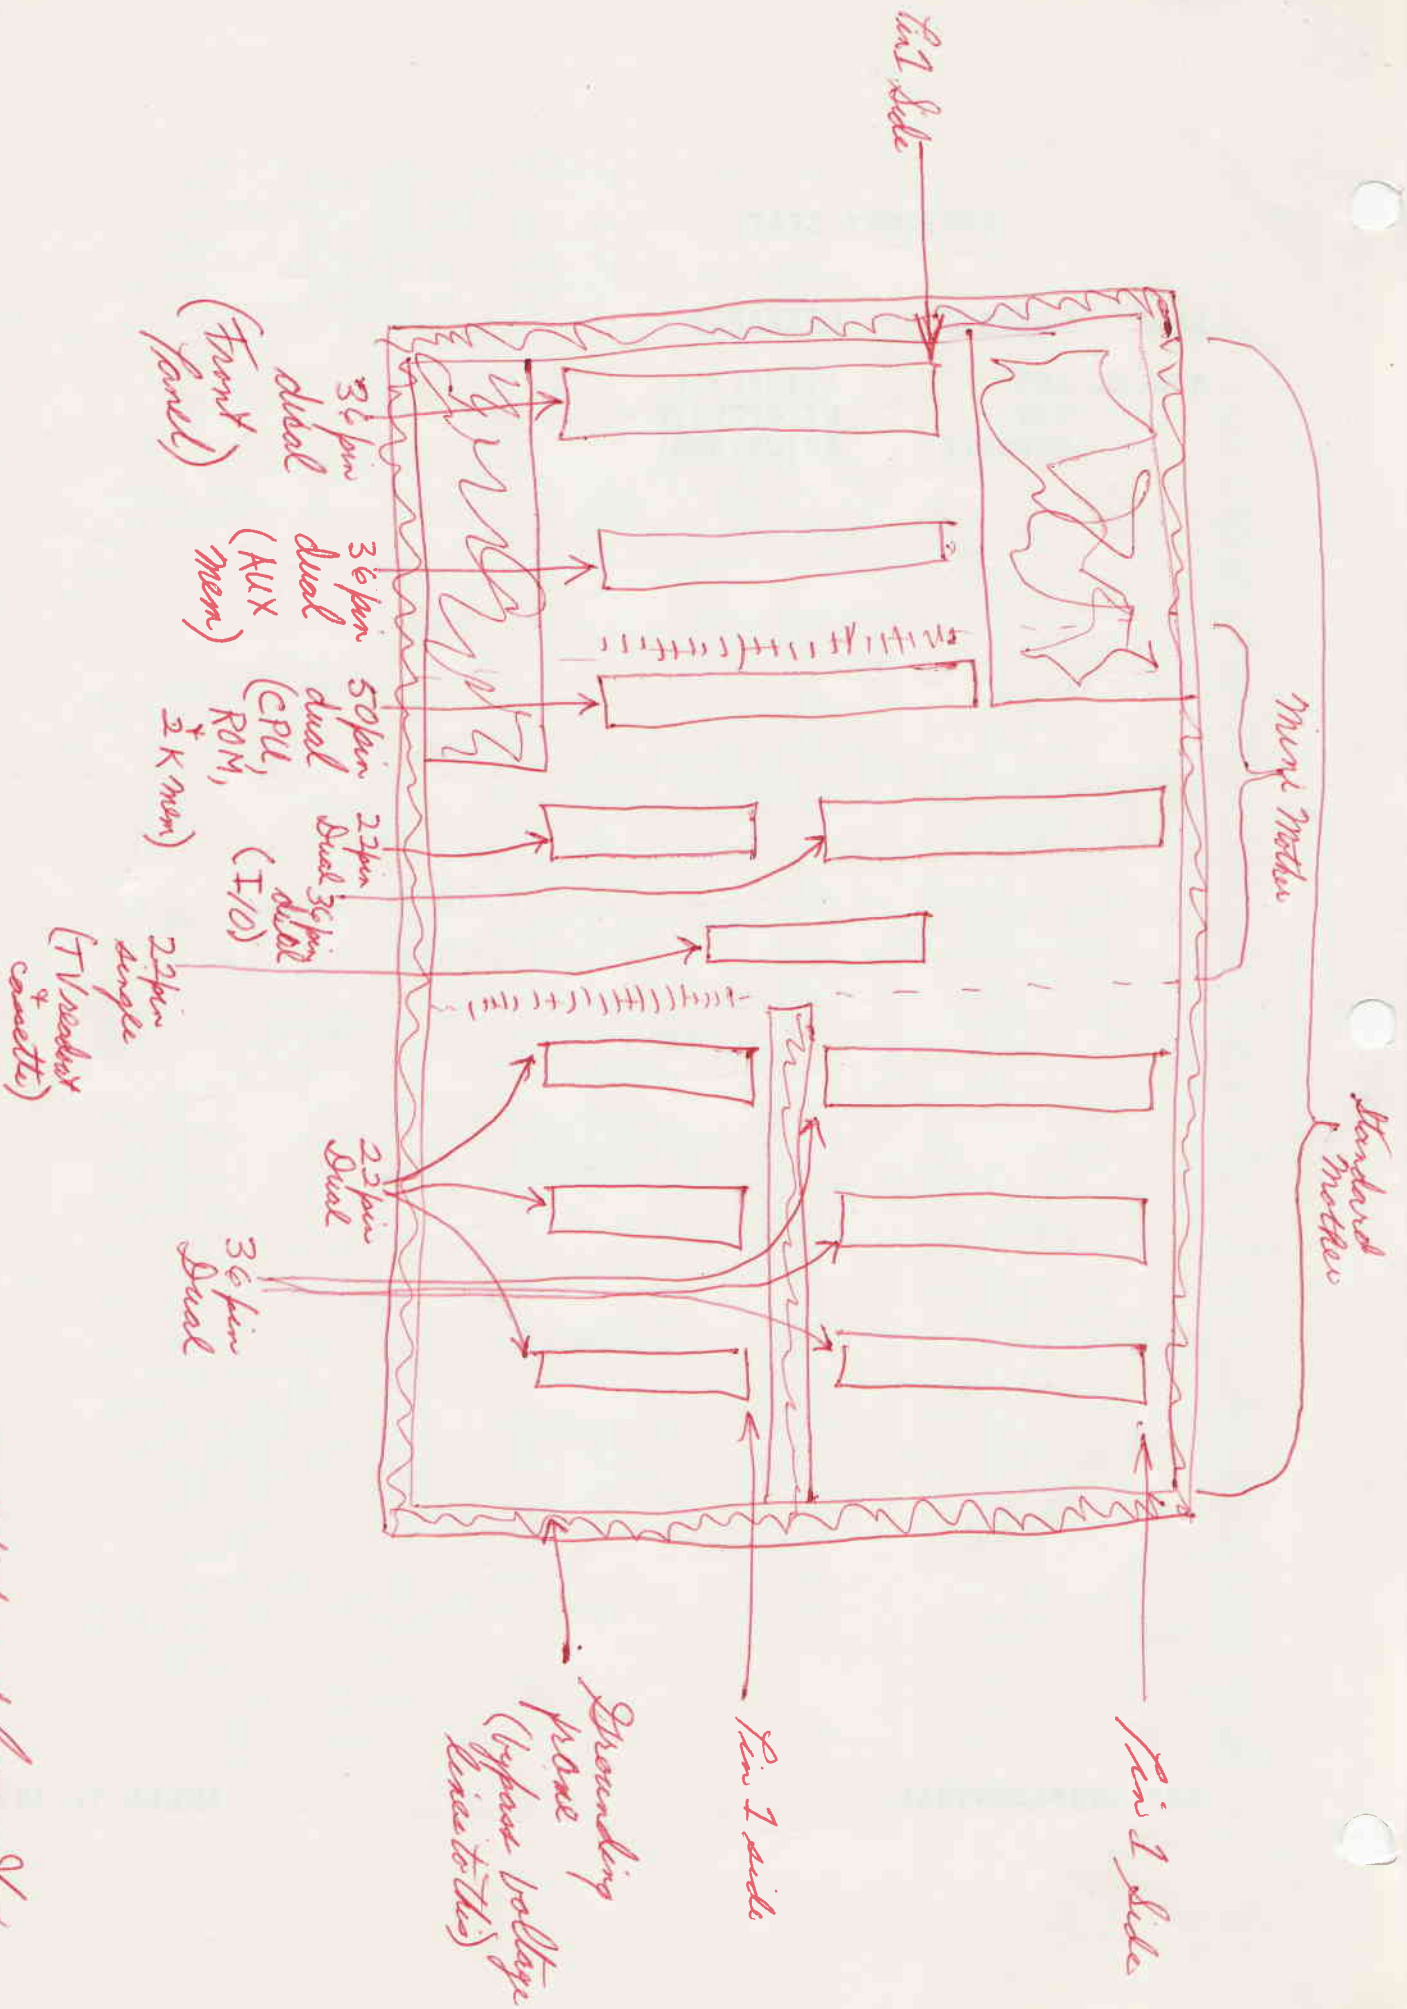 Pin 1 Side
Mini Mother
Standard
Mother
36 pin
dual
(Front
Panel)
36 pin
dual
(AUX
mem)
50 pin
dual
(CPU,
ROM,
+
2K mem)
22 pin
Dual
36 pin
dual
(I/O)
22 pin
single
(TV readout
+
cassette)
22 pin
Dual
36 pin
Dual
Pin 1 Side
Pin 1 side
Grounding
(bypass voltage
lines to this)